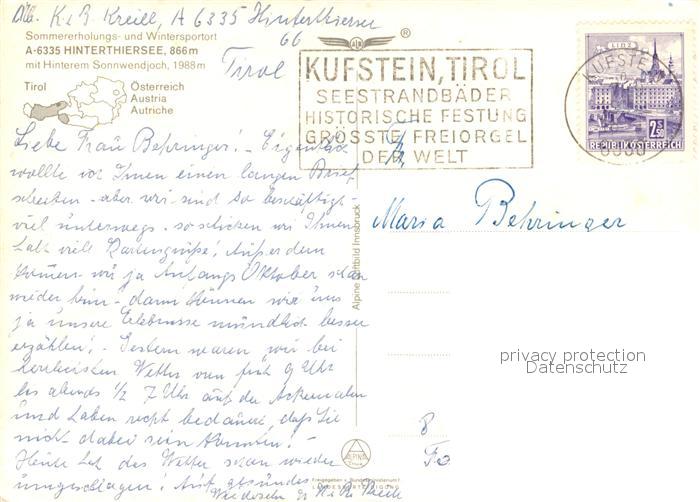 K. & R. Kreill, A 6335 Hinterthiersee
66
Tirol
Sommererholungs- und Wintersportort
A-6335 HINTERTHIERSEE, 866 m
mit Hinterem Sonnwendjoch, 1988 m
Tirol
Österreich
Austria
Autriche
KUFSTEIN, TIROL
SEESTRANDBÄDER
HISTORISCHE FESTUNG
GRÖSSTE FREIORGEL
DER WELT
KUFSTEIN
LINZ
2.50
REPUBLIK ÖSTERREICH
Liebe Frau Behringer! - Eigentlich
wollte vor Ihnen einen langen Brief
schreiben - aber wir sind so beschäftigt -
viel unterwegs - so schicken wir Ihnen
halt viele Kartengrüße! Außerdem
kommen wir ja Anfangs Oktober schon
wieder heim - dann können wir uns
ja unsere Erlebnisse mündlich besser
erzählen! - Gestern waren wir bei
herrlichstem Wetter von früh 9 Uhr
bis abends 1/2 7 Uhr auf der Ackernalm
und haben recht bedauert, daß Sie
nicht dabei sein konnten! -
Heute hat das Wetter schon wieder
umgeschlagen! Auf gesundes
Wiedersehn
Maria Behringer
Alpine Luftbild Innsbruck
privacy protection
Datenschutz
8
ALPINE